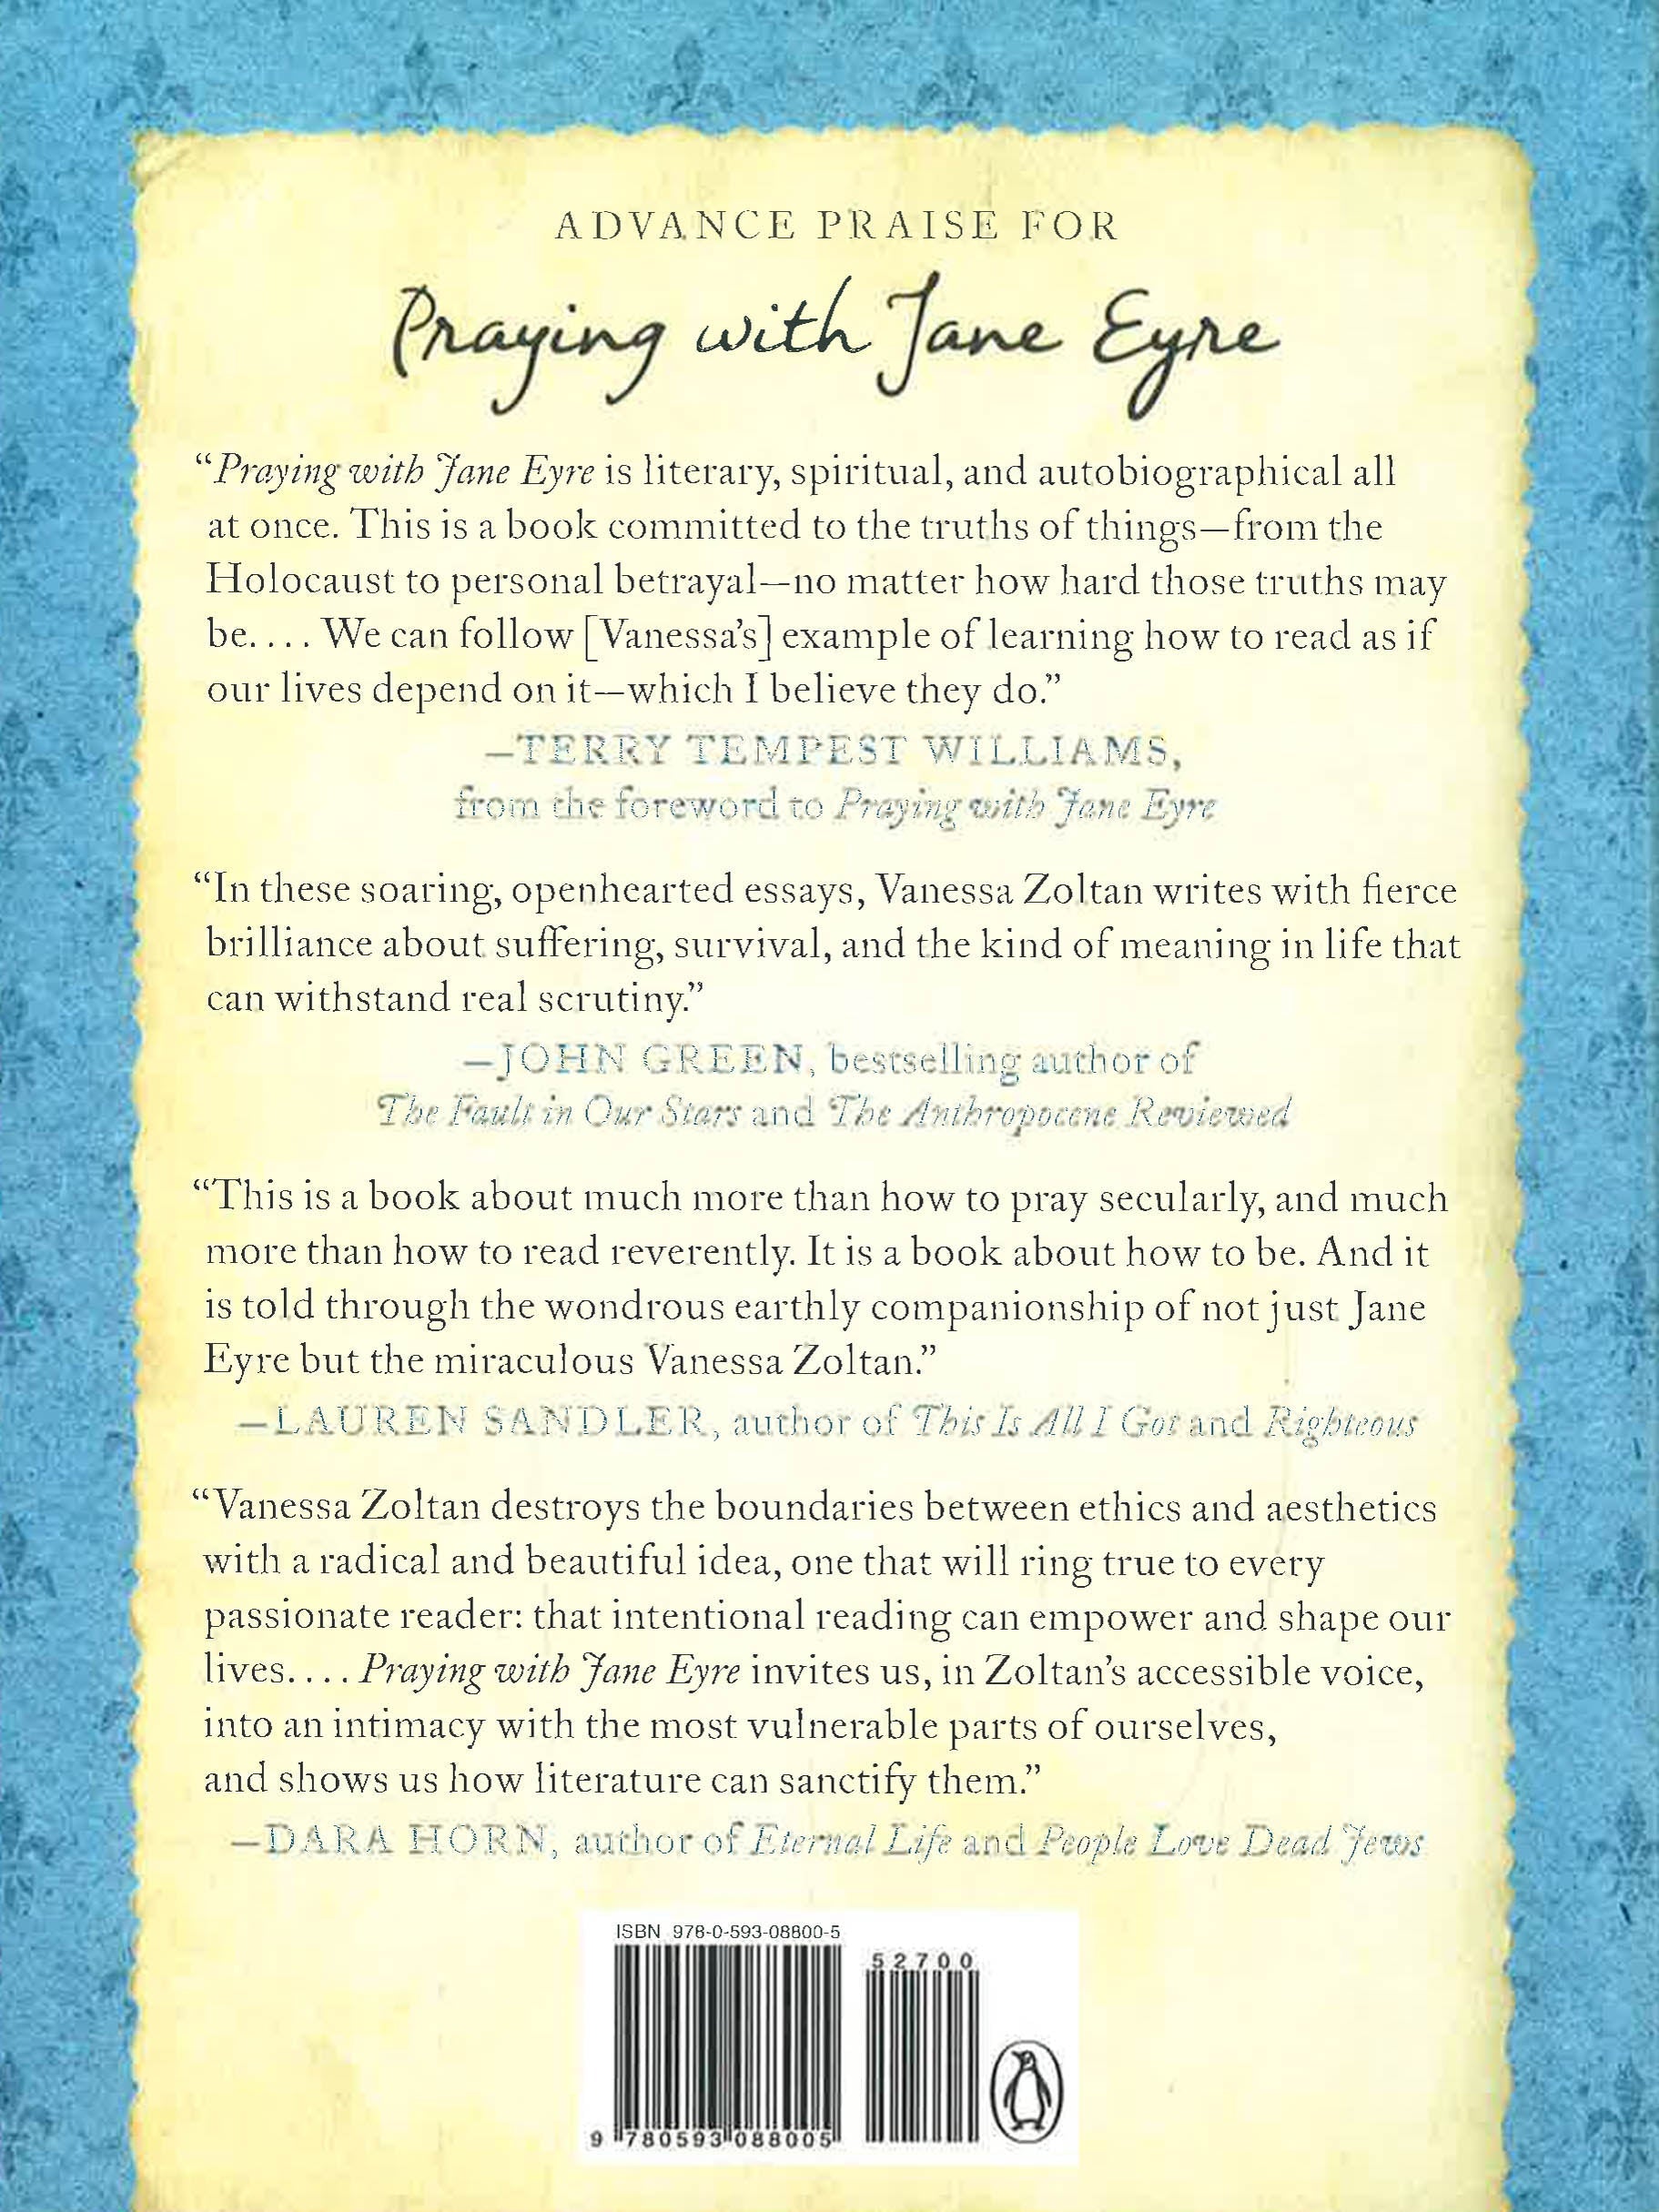 ADVANCE PRAISE FOR
Praying with Jane Eyre
“Praying with Jane Eyre is literary, spiritual, and autobiographical all
at once. This is a book committed to the truths of things—from the
Holocaust to personal betrayal—no matter how hard those truths may
be.... We can follow [Vanessa’s] example of learning how to read as if
our lives depend on it—which I believe they do.”
—TERRY TEMPEST WILLIAMS,
from the foreword to Praying with Jane Eyre
“In these soaring, openhearted essays, Vanessa Zoltan writes with fierce
brilliance about suffering, survival, and the kind of meaning in life that
can withstand real scrutiny.”
—JOHN GREEN, bestselling author of
The Fault in Our Stars and The Anthropocene Reviewed
“This is a book about much more than how to pray secularly, and much
more than how to read reverently. It is a book about how to be. And it
is told through the wondrous earthly companionship of not just Jane
Eyre but the miraculous Vanessa Zoltan.”
—LAUREN SANDLER, author of This Is All I Got and Righteous
“Vanessa Zoltan destroys the boundaries between ethics and aesthetics
with a radical and beautiful idea, one that will ring true to every
passionate reader: that intentional reading can empower and shape our
lives.... Praying with Jane Eyre invites us, in Zoltan’s accessible voice,
into an intimacy with the most vulnerable parts of ourselves,
and shows us how literature can sanctify them.”
—DARA HORN, author of Eternal Life and People Love Dead Jews
ISBN 978-0-593-08800-5
52700
9 780593 088005